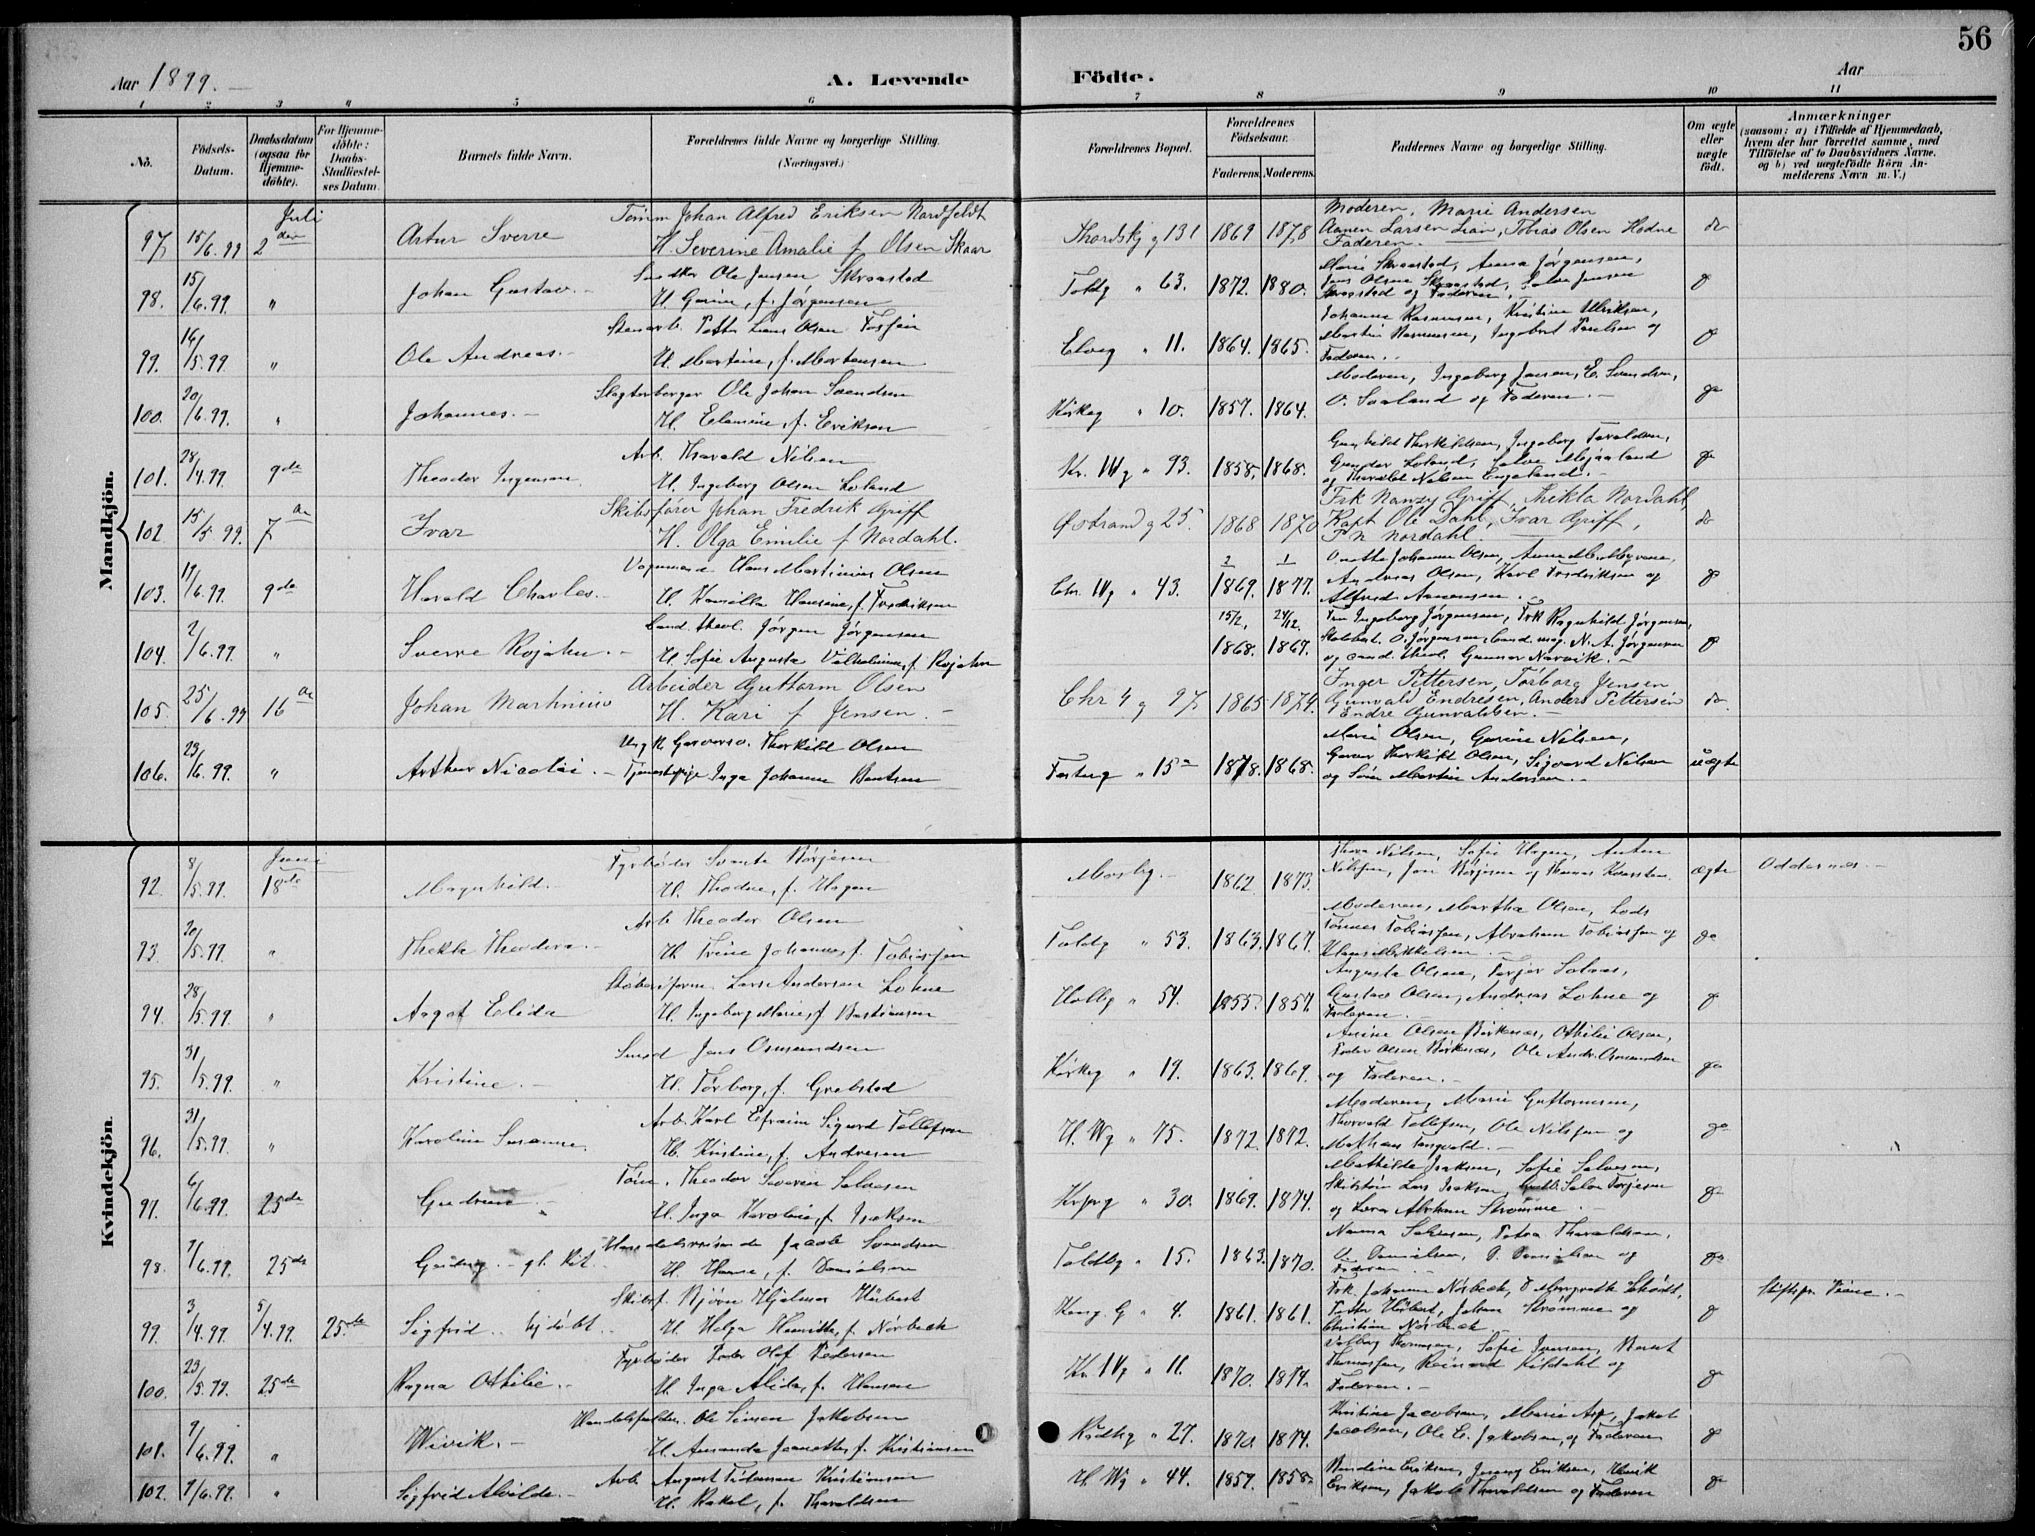 56
Aar 1899. A. Levende Födte. Aar
1 2 3 4 5 6 7 8 9 10 11
No.
Födsels-
Datum.
Daabsdatum
(ogsaa for
Hjemme-
döbte).
For Hjemme-
döbte:
Daabs-
Stadfæstel-
ses Datum.
Barnets fulde Navn.
Forældrenes fulde Navne og borgerlige Stilling.
(Næringsvei.)
Forældrenes Bopæl.
Forældrenes
Födselsaar.
Faderens. Moderens.
Faddernes Navne og borgerlige Stilling.
Om ægte
eller
uægte
födt.
Anmærkninger
(saasom: a) i Tilfælde af Hjemmedaab,
hvem der har forrettet samme, med
Tilföielse af to Daabsvidners Navne.
og b) ved uægtefödte Börn An-
melderens Navn m. V.)
Mandkjön.
Juli
97 15/6.99 2den Artur Sverre
Tömm Johan Alfred Eriksen Nordfeldt
H. Severine Amalie f Olsen Skaar
Thordskj g 131 1869 1878
Moderen, Marie Andersen
Aanen Larsen Lian, Tobias Olsen Hodne
Faderen. do
98. 15/6.99. " Johan Gustav.
Ole Jensen Skraastad
H. Gurine, f. Jørgensen
Toldg " 63. 1872. 1880.
Marie Skraastad, Anna Jørgensen,
Jens Olsen Skraastad, Salve Jensen
Skraastad og Faderen.
99. 16/5.99. " Ole Andreas.
Stenarb. Petter Lars Olsen
H. Martine, f. Mortensen
Elveg " 11. 1864. 1865.
Johanne Rasmussen, Kristine Ulriksen,
Martin Rasmussen, Ingebret Paulsen og
Faderen.
100. 20/6.99. " Johannes.
Slagterborger Ole Johan Svendsen
H. Elamine, f. Eriksen
Kirkeg " 10. 1857. 1864.
Moderen, Ingeborg Jensen, E. Svendsen,
O. Saaland og Faderen.
101. 28/4.99 9de Theodor Ingeman.
Arb. Tharald Nilsen
H. Ingeborg Olsen Loland
Kr. IVg " 93. 1858. 1868.
Gunhild Thorkildsen, Ingeborg Taraldsen,
Gunder Loland, Salve Mejaaland
og Tharald Nilsen
102 15/5 99. 7de Ivar
Skibsfører Johan Fredrik Griff
H. Olga Emilie f Nordahl.
Østrand g 25. 1868 1870
Frk Nanzy Griff, Thekla Nordahl,
Kapt Ole Dahl, Ivar Griff,
F N Nordahl. do
103. 17/6.99. 9de Harald Charles.
Vognmand Hans Martinius Olsen
H. Kamilla Hansine, f. Fredriksen
Chr. IVg " 43. 1869. 1877.
Johanne Olsen, Anne M. Myrene,
Andreas Olsen, Karl Fredriksen og
Alfred Aanensen.
104. 2/6.99. " Sverre Rojahn.
Cand. theol. Jørgen Jørgensen
H. Sofie Augusta Vilhelmine, f. Rojahn
15/2, 1868. 24/12. 1867.
Fru Ingeborg Jørgensen, Frk Ragnhild Jørgensen,
O. Jørgensen, Cand. mag. N. A. Jørgensen
og cand. theol. Gunnar Narvik.
105. 25/6.99 16de Johan Martinius
Arbeider Guttorm Olsen
H. Kari f Jensen.
Chr 4 g 97 1865 1874.
Inger Pettersen, Torborg Jensen
Gunvald Endresen, Anders Pettersen
Endre Gunvaldsen. do
106. 23/6.99. " Arthur Nicolai.
Ungk. Garversv. Thorkild Olsen
Tjenestepige Inga Johanne Bentsen
Festng " 15a 1878. 1868.
Marie Olsen, Gurine Nilsen,
Garver Thorkild Olsen, Sigvard Nilsen
og Martin Andersen. uægte
Kvindekjön.
Juni
92. 8/5.99. 18de Magnhild.
Fyrbøder Svante Børjesen
H. Thodne, f. Hagen
1862 1873.
Thora Nilsen, Sofie Hagen, Anton
Nilsen, Børjesen og Thomas ægte Oddernæs.
93. 20/5.99. " Thekla Theodora.
Arb Theodor Olsen
H. Trine Johanne, f. Tobiassen
Toldbg " 53. 1863. 1867.
Moderen, Martha Olsen, Lods
Tønnes Tobiassen, Abraham Tobiassen og
Hans Mikkelsen.
94. 28/5.99. " Aagot Elida
Støberiform. Lars Andersen Lohne
H. Ingeborg Marie, f Bastiansen
Holbg " 54. 1855. 1857.
Augusta Olsen, Terjer Salves,
Gustav Olsen, Andreas Lohne og
Faderen.
95. 31/5.99. " Kristine.
Smed Jens Osmundsen
H. Torborg, f. Grebstad
Kirkeg " 19. 1863. 1869.
Anine Olsen Birkenæs, Othilie Olsen,
Peder Olsen Birkenæs, Ole Andr. Osmundsen
og Faderen.
96. 31/5.99. " Karoline Susanne.
Arb. Karl Efraim Sigurd Tellefsen
H. Kristine, f. Andresen
H. Wg " 75. 1872. 1872.
Moderen, Marie Guttormsen,
Thorvald Tellefsen, Ole Nilssen og
Mathias Tangvald.
97. 6/6.99. 25de Gudrun.
Tøm. Theodor Severin Salvesen
H. Inga Karoline, f Isaksen
30. 1869. 1874.
Mathilde Isaksen, Sofie Salvesen,
Skibstøm Lars Isaksen, Salve Terjesen
og Abraham Strømme.
98. 7/6.99. 25de Gudny.
Handelsreisende Jacob Svendsen
H. Hanne, f. Danielsen
Toldbg " 15. 1863. 1870.
Nanna Salvesen, Petra Tharaldsen,
O. Danielsen, D. Danielsen og
Faderen.
99. 3/4.99. 5/4.99. 25de Sigfrid. hjdøbt.
Skibsf. Bjørn Hjalmar Hübert
H. Helga Henriette, f. Nörbech
Kong. G " 4. 1861. 1861.
Frk. Johanne Nörbech, Margrethe Schødt,
Hübert, Johan Strømme og
Christian Nörbech Stiftspr.
100. 23/5.99. 25de Ragna Othilie.
Fyrbøder Peder Olof Pedersen
H. Inga Alida, f. Hansen
Kr. IVg " 11. 1870. 1874.
Valborg Thomassen, Sofie Iversen, Bernt
Thomassen, Reinard Kildahl og
Faderen.
101. 7/6.99. " Wivik.
Handelsfuldm. Ole Simon Jakobsen
H. Amanda Jeanette, f. Kristiansen
Raadhg " 27. 1870. 1874.
Kristine Jacobsen, Marie Asp, Jakob
Jacobsen, Ole E. Jakobsen, og Faderen
102. 9/6.99. " Sigfrid Alvilde.
Arb. August Tidemann Kristiansen
H. Rakel, f. Tharaldsen
H. Wg " 44. 1859. 1858.
Bendine Eriksen, Jenny Eriksen, Henrik
Eriksen, Jakob Tharaldsen og Faderen